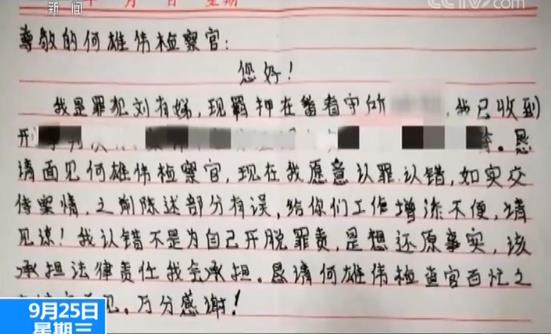 新闻
月 日 星期
尊敬的何雄伟检察官:
您好!
我是罪犯刘有娣,现羁押在 看守所 我已收到
恳
请面见何雄伟检察官,现在我愿意认罪认错,如实交
待案情,之前陈述部分有误,给你们工作增添不便,请
见谅!我认错不是为自己开脱罪责,是想还原事实,该
承担法律责任我会承担。恳请何雄伟检查官百忙之
见。万分感谢!
9月25日
星期三